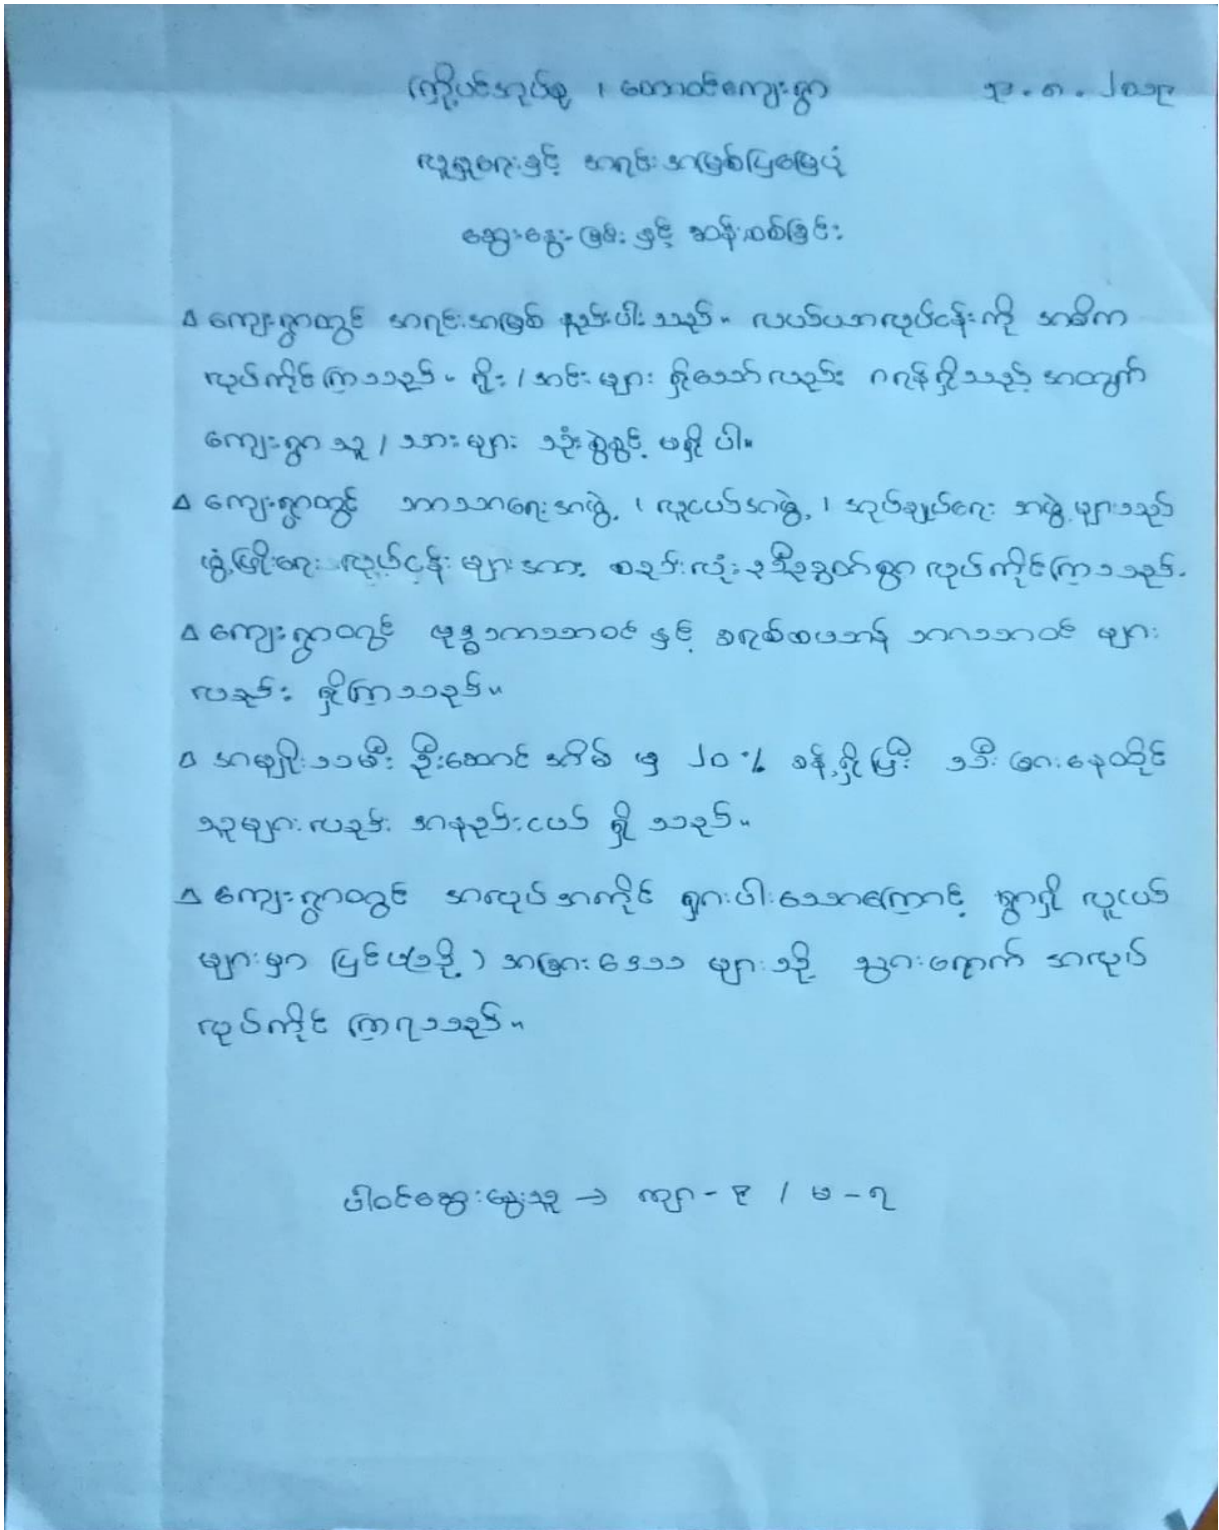 ကြို့ပင်အုပ်စု ၊ တောဝင်ကျေးရွာ ၃.၈.၂၀၁၉
လူမှုရေးနှင့် အရင်းအမြစ်ပြမြေပုံ
ဆွေးနွေးခြင်း နှင့် ဆန်းစစ်ခြင်း
Δ ကျေးရွာတွင် အရင်းအမြစ် နည်းပါးသည်။ လယ်ယာလုပ်ငန်းကို အဓိက
လုပ်ကိုင်ကြသည်။ ရိုး / အင်း များ ရှိသော်လည်း ဂရန်ရှိသည့် အတွက်
ကျေးရွာ သူ / သား များ သုံးစွဲခွင့် မရှိ ပါ။
Δ ကျေးရွာတွင် ဘာသာရေးအဖွဲ့ ၊ လူငယ်အဖွဲ့ ၊ အုပ်ချုပ်ရေး အဖွဲ့ များသည်
ဖွံ့ဖြိုးရေး လုပ်ငန်း များအား စည်းလုံးညီညွတ်စွာ လုပ်ကိုင်ကြသည်.
Δ ကျေးရွာတွင် ဗုဒ္ဓဘာသာဝင် နှင့် ခရစ်ယာန် ဘာသာဝင် များ
လည်း ရှိကြသည်။
Δ အမျိုးသမီး ဦးဆောင် အိမ် မှ ၂၀ % ခန့်ရှိပြီး သီးခြားနေထိုင်
သူများလည်း အနည်းငယ် ရှိ သည်။
Δ ကျေးရွာတွင် အလုပ်အကိုင် ရှားပါးသောကြောင့် ရွာရှိ လူငယ်
များမှာ ပြင်ပ(သို့) အခြားဒေသ များသို့ သွားရောက် အလုပ်
လုပ်ကိုင် ကြရသည်။
ပါဝင်ဆွေးနွေးသူ → ကျား - ၉ / မ - ၇